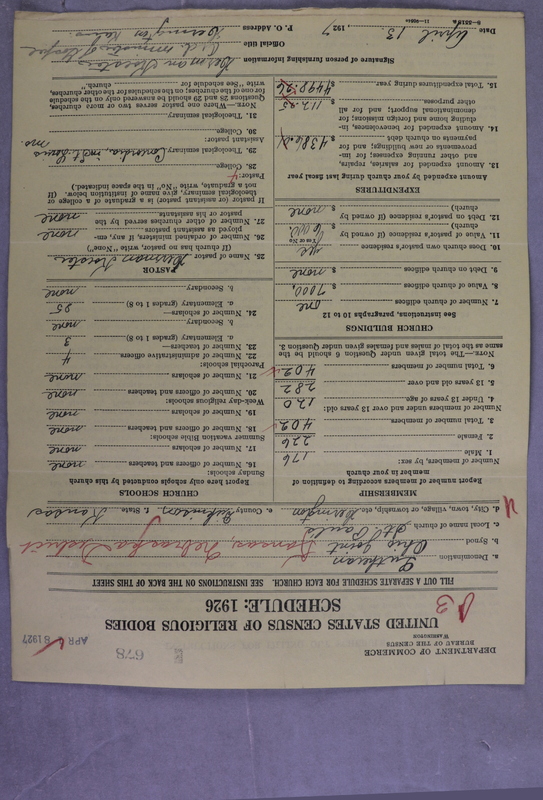 DEPARTMENT OF COMMERCE
BUREAU OF THE CENSUS
WASHINGTON
678
APR 8 1927
UNITED STATES CENSUS OF RELIGIOUS BODIES
SCHEDULE: 1926
FILL OUT A SEPARATE SCHEDULE FOR EACH CHURCH. SEE INSTRUCTIONS ON THE BACK OF THIS SHEET
a. Denomination Lutheran
b. Synod Ohio Joint Kansas, Nebraska District
c. Local name of church St. Pauls
d. City, town, village, or township, etc. Herington e. County Dickinson f. State Kansas
MEMBERSHIP
Report number of members according to definition of member in your church
Number of members, by sex:
1. Male 176
2. Female 226
3. Total number of members 402
Number of members under and over 13 years old:
4. Under 13 years of age 120
5. 13 years old and over 282
6. Total number of members 402
NOTE.—The total given under Question 6 should be the same as the total of males and females given under Question 3.
CHURCH BUILDINGS
See instructions, paragraphs 10 to 12
7. Number of church edifices one
8. Value of church edifices $ 7000.
9. Debt on church edifices $ none
10. Does church own pastor's residence yes
(Yes or No)
11. Value of pastor's residence (if owned by church) $ 6000.
12. Debt on pastor's residence (if owned by church) $ none
EXPENDITURES
Amount expended by your church during last fiscal year
13. Amount expended for salaries, repairs, and other running expenses; for improvements or new building; and for payments on church debt $
14. Amount expended for benevolences, including home and foreign missions; for denominational support; and for all other purposes $ 112.25
15. Total expenditures during year $ 4498.26
CHURCH SCHOOLS
Report here only schools conducted by this church
Sunday schools:
16. Number of officers and teachers none
17. Number of scholars none
Summer vacation Bible schools:
18. Number of officers and teachers none
19. Number of scholars none
Week-day religious schools:
20. Number of officers and teachers none
21. Number of scholars none
Parochial schools:
22. Number of administrative officers 4
23. Number of teachers—
a. Elementary (grades 1 to 8) 3
b. Secondary none
24. Number of scholars—
a. Elementary (grades 1 to 8) 95
b. Secondary none
PASTOR
25. Name of pastor Herman Koester
(If church has no pastor, write "None")
26. Number of ordained ministers, if any, employed as assistant pastors none
27. Number of other churches served by the pastor or his assistants none
If pastor (or pastor) is a graduate of a college or theological seminary, give name of institution below. (If not a graduate, write "No" in the space indicated.)
Pastor:
28. College
29. Theological seminary Concordia, inst. St. Louis Mo
Assistant pastor:
30. College
31. Theological seminary
NOTE.—Where one pastor serves two or more churches, Questions 25 and 29 should be answered only on the schedule for one of the churches; on the schedules for the other churches, write "See schedule for church."
Signature of person furnishing information Herman Koester
Official title
P. O. Address Herington Kans.
Date April 13, 1927